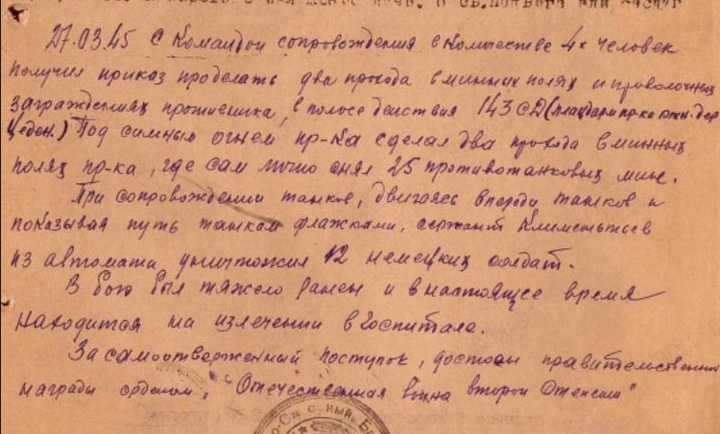 27.03.45 с командой сопровождения в количестве 4х человек
получил приказ проделать два прохода в минных полях и проволочных
заграждениях противника, в полосе действия 143 СД (плацдарм пр-ка
Цеден.) Под сильным огнем пр-ка сделал два прохода в минных
полях пр-ка, где сам лично снял 25 противотанковых мин.
При сопровождении танков, двигаясь впереди танков и
показывая путь танкам флажками, сержант Клементьев
из автомата уничтожил 12 немецких солдат.
В бою был тяжело ранен и в настоящее время
находится на излечении в госпитале.
За самоотверженный поступок, достоин правительственной
награды орденом, "Отечественная война второй степени"